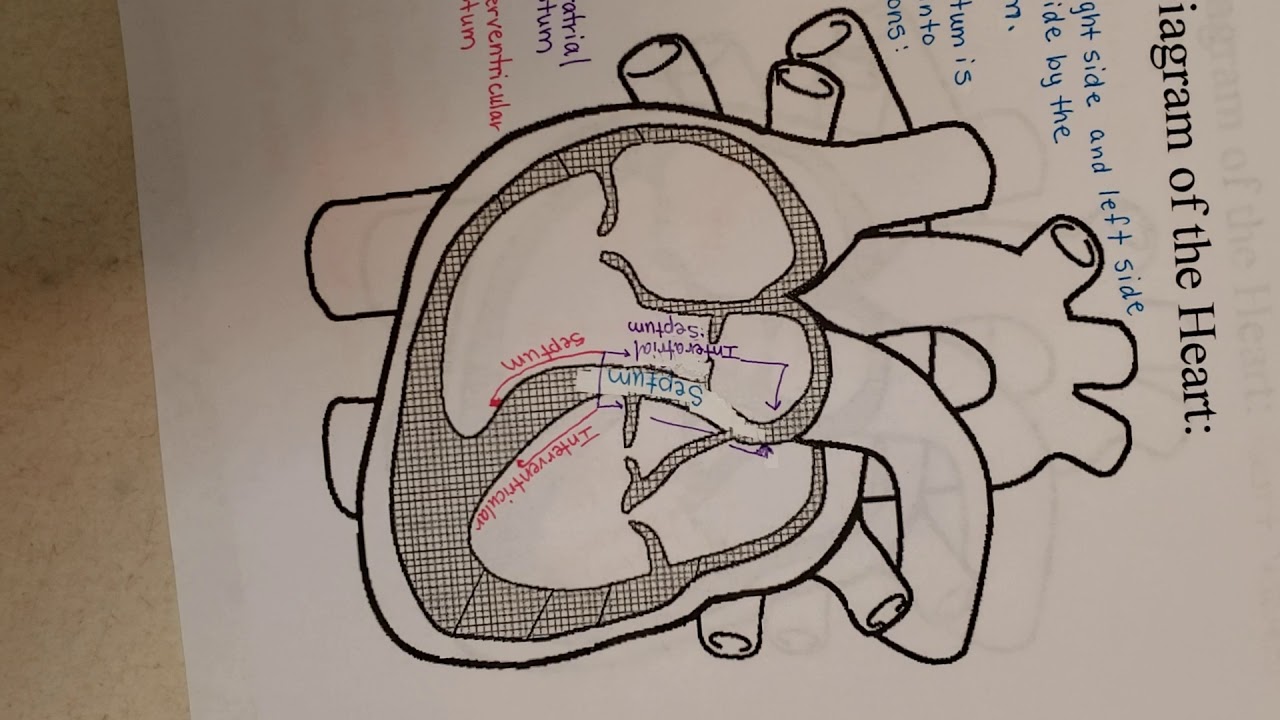 iagram of the Heart:
ght side and left side
ide by the
m.
tum is
into
ons:
ratrial
tum
erventricular
tum
Interatrial
Septum
Septum
Septum
Interventricular